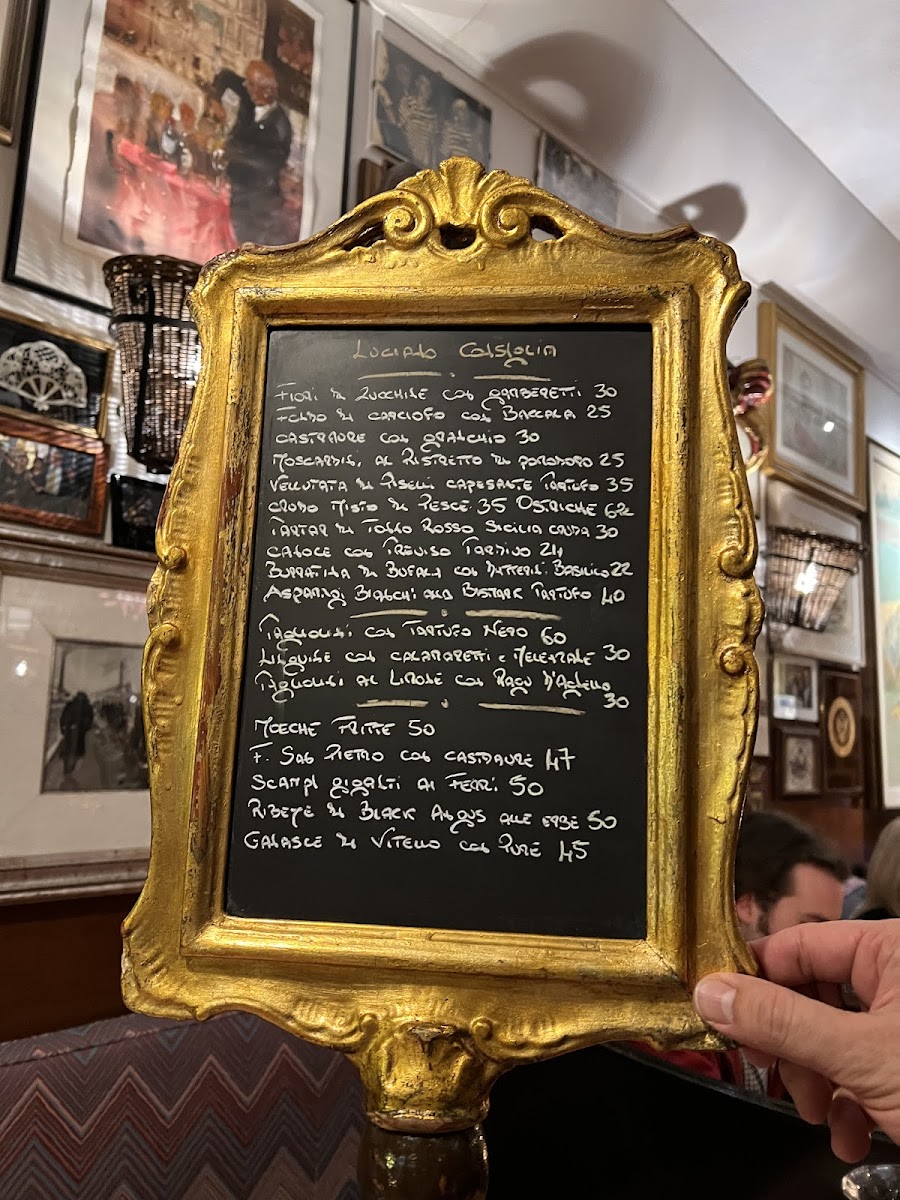 Luciano Consiglia
Fiori di Zucchine con gamberetti 30
Fondo di carciofo con Baccala 25
Castraure con granchio 30
Moscardini al Ristretto di pomodoro 25
Vellutata di Piselli capesante Tartufo 35
Crudo Misto di Pesce 35 Ostriche 6
Tartar di Tonno Rosso Sicilia cruda 30
Canoce con Treviso Tardivo 24
Burratina di Bufala con Basilico 22
Asparagi Bianchi alla Bismark Tartufo 40
Tagliolini con Tartufo Nero 60
Linguine con calamaretti e Melenzane 30
Tagliolini al Limone con Ragu d'Agnello
30
Moeche Fritte 50
F. San Pietro con castraure 47
Scampi giganti ai Ferri 50
Ribeye di Black Angus alle erbe 50
Guancie di Vitello con Pure 45